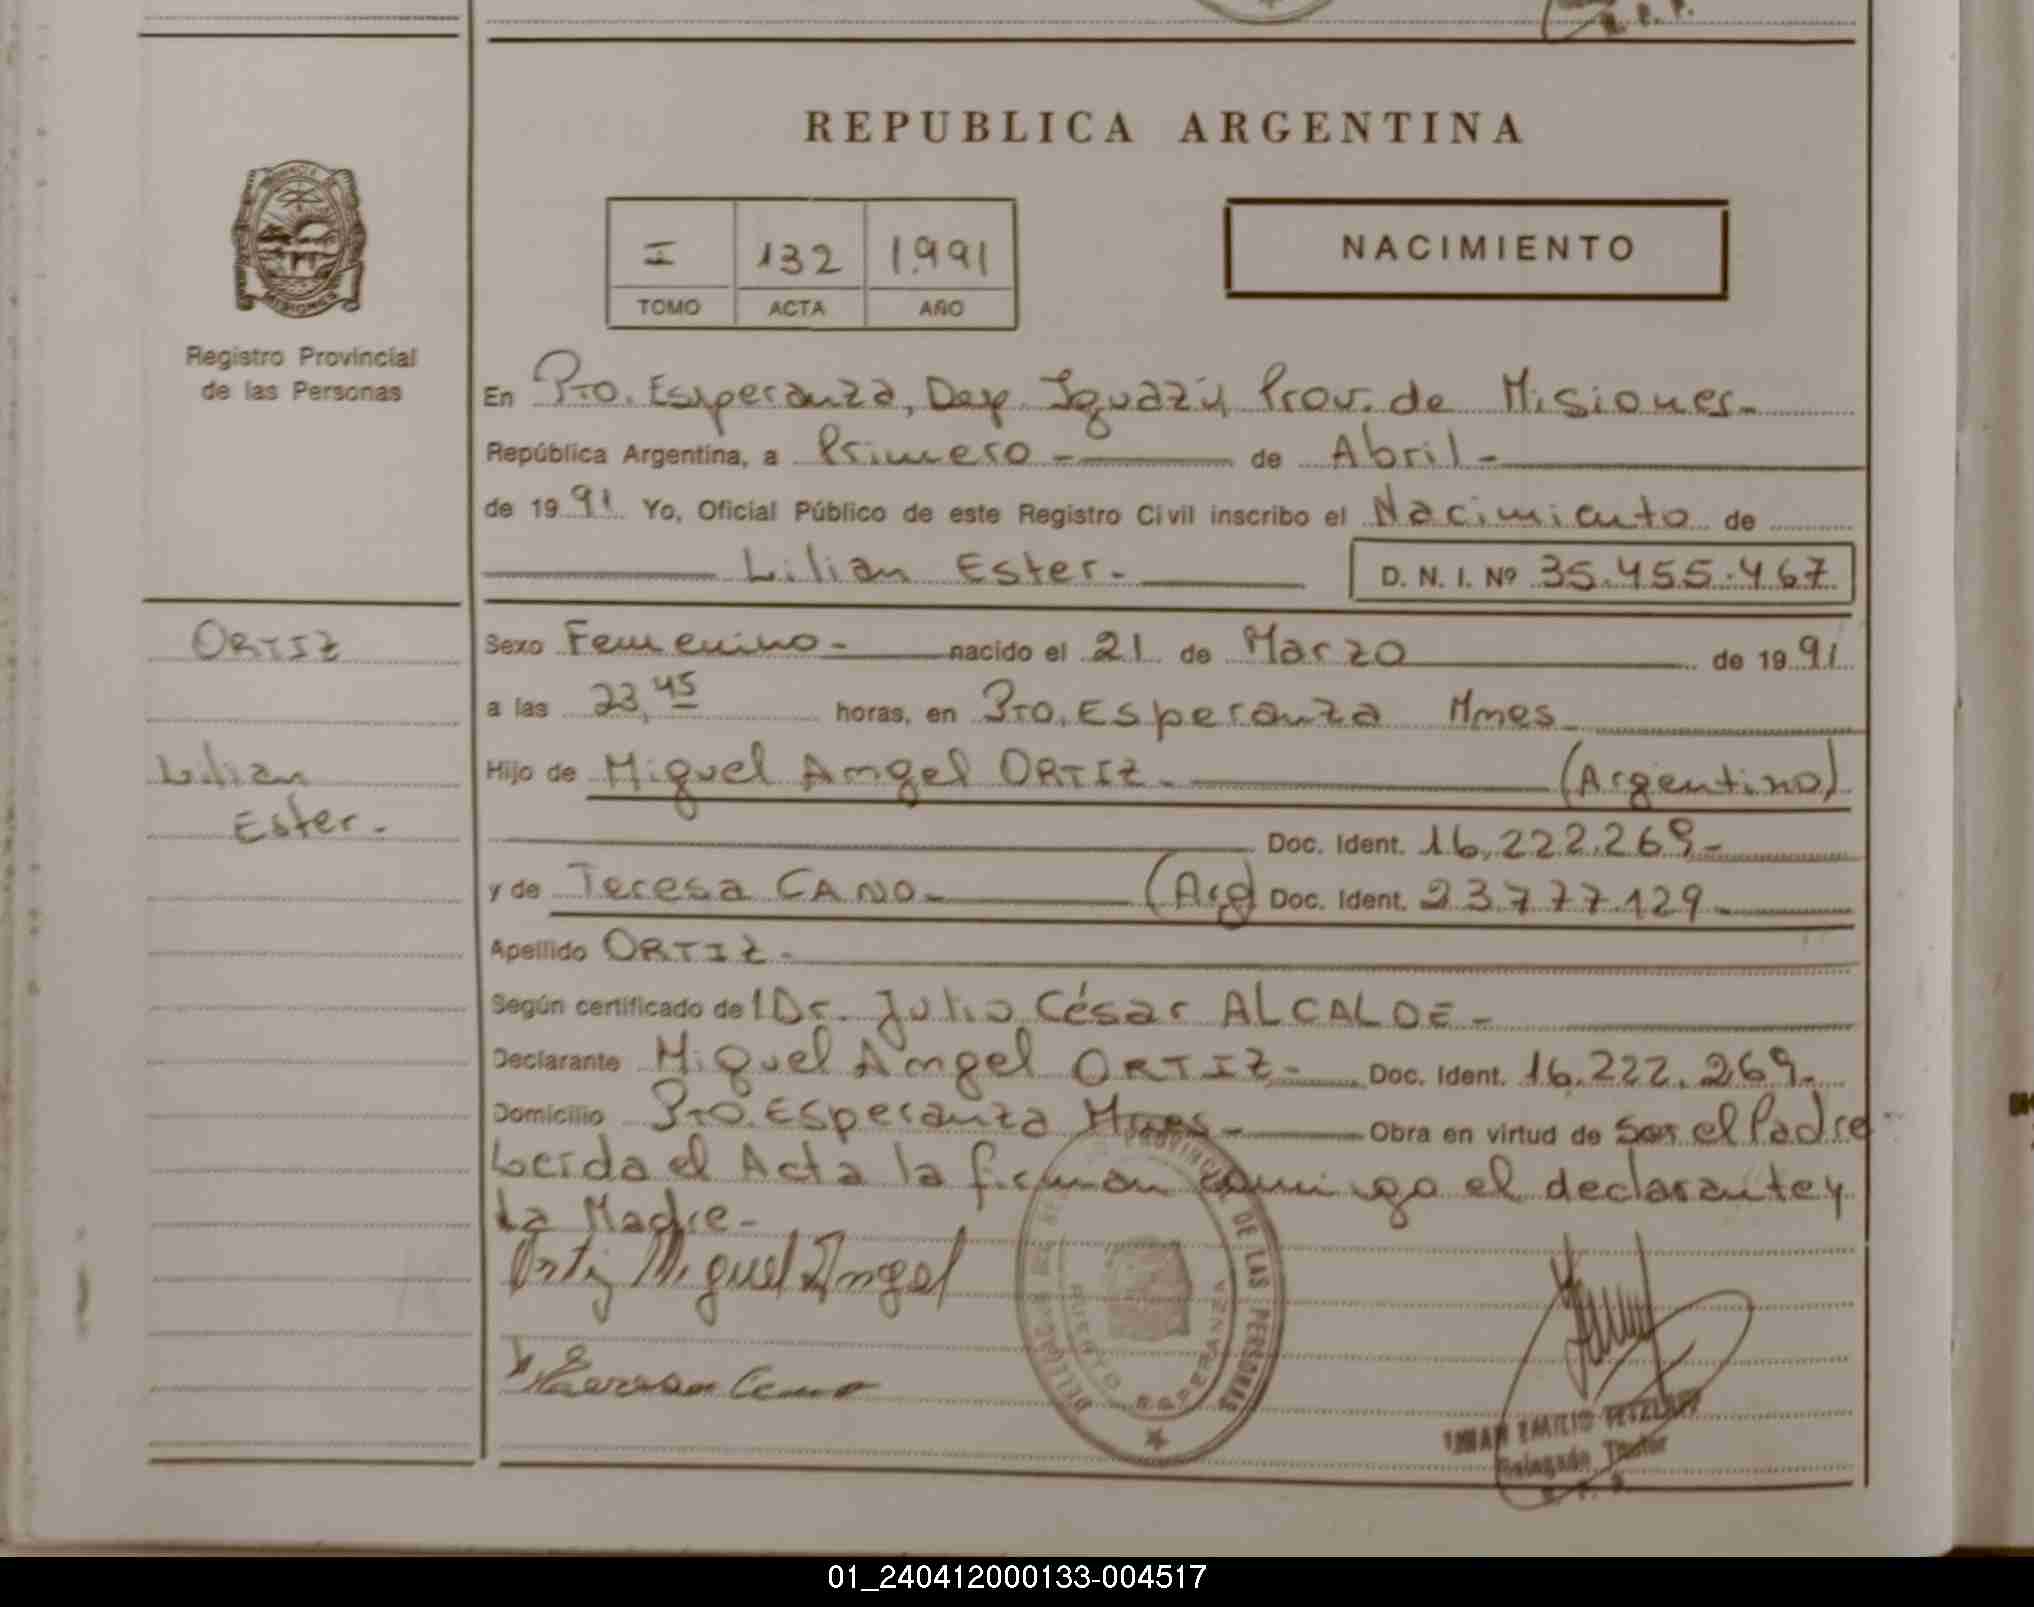 REPUBLICA ARGENTINA
I 132 1.991
TOMO ACTA AÑO
NACIMIENTO
MISIONES
Registro Provincial
de las Personas
En Pto. Esperanza, Dep. Iguazú Prov. de Misiones.-
República Argentina, a Primero - de Abril -
de 19 91 Yo, Oficial Público de este Registro Civil inscribo el Nacimiento de
Lilian Ester.- D. N. I. Nº 35.455.467
ORTIZ
Lilian
Ester.-
Sexo Femenino - nacido el 21 de Marzo de 19 91
a las 23,45 horas, en Pto. Esperanza Mnes -
Hijo de Miguel Angel ORTIZ - (Argentino)
Doc. Ident. 16.222.269 -
y de Teresa CANO - (Arg) Doc. Ident. 23.777.129 -
Apellido ORTIZ -
Según certificado del Dr. Julio César ALCALDE -
Declarante Miguel Angel ORTIZ - Doc. Ident. 16.222.269 -
Domicilio Pto. Esperanza Mnes - Obra en virtud de ser el Padre
Leída el Acta la firman conmigo el declarante y
La Madre -
Ortiz Miguel Angel
Cano
PROVINCIAL DE LAS PERSONAS
PUERTO ESPERANZA
EMILIO
Delegado Titular
01_240412000133-004517